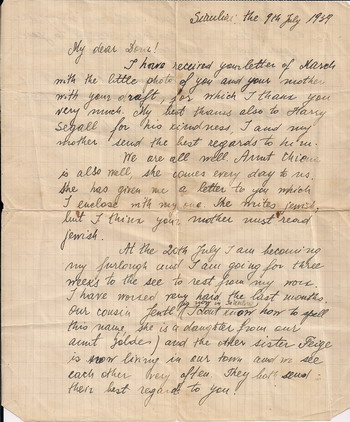 Siauliai, the 9th July 1939
My dear Dora!
I have received your letter of March
with the little photo of you and your mother
with your draft, for which I thank you
very much. My best thanks also to Harry
Segall for his kindness. I and my
mother send the best regards to him.
We are all well. Aunt
is also well, she comes every day to us.
She has given me a letter to you which
I enclose with my one. She writes jewish,
but I think your mother must read
jewish.
At the 20th July I am becoming
my furlough and I am going for three
weeks to the see to rest from my work.
I have worked very hard the last months.
Our cousin Jentl (I don't know how to spell
this name, she is a daughter from our
aunt Zölde) and the other sister Feige
is now living in our town and we see
each other very often. They both send
their best regards to you!